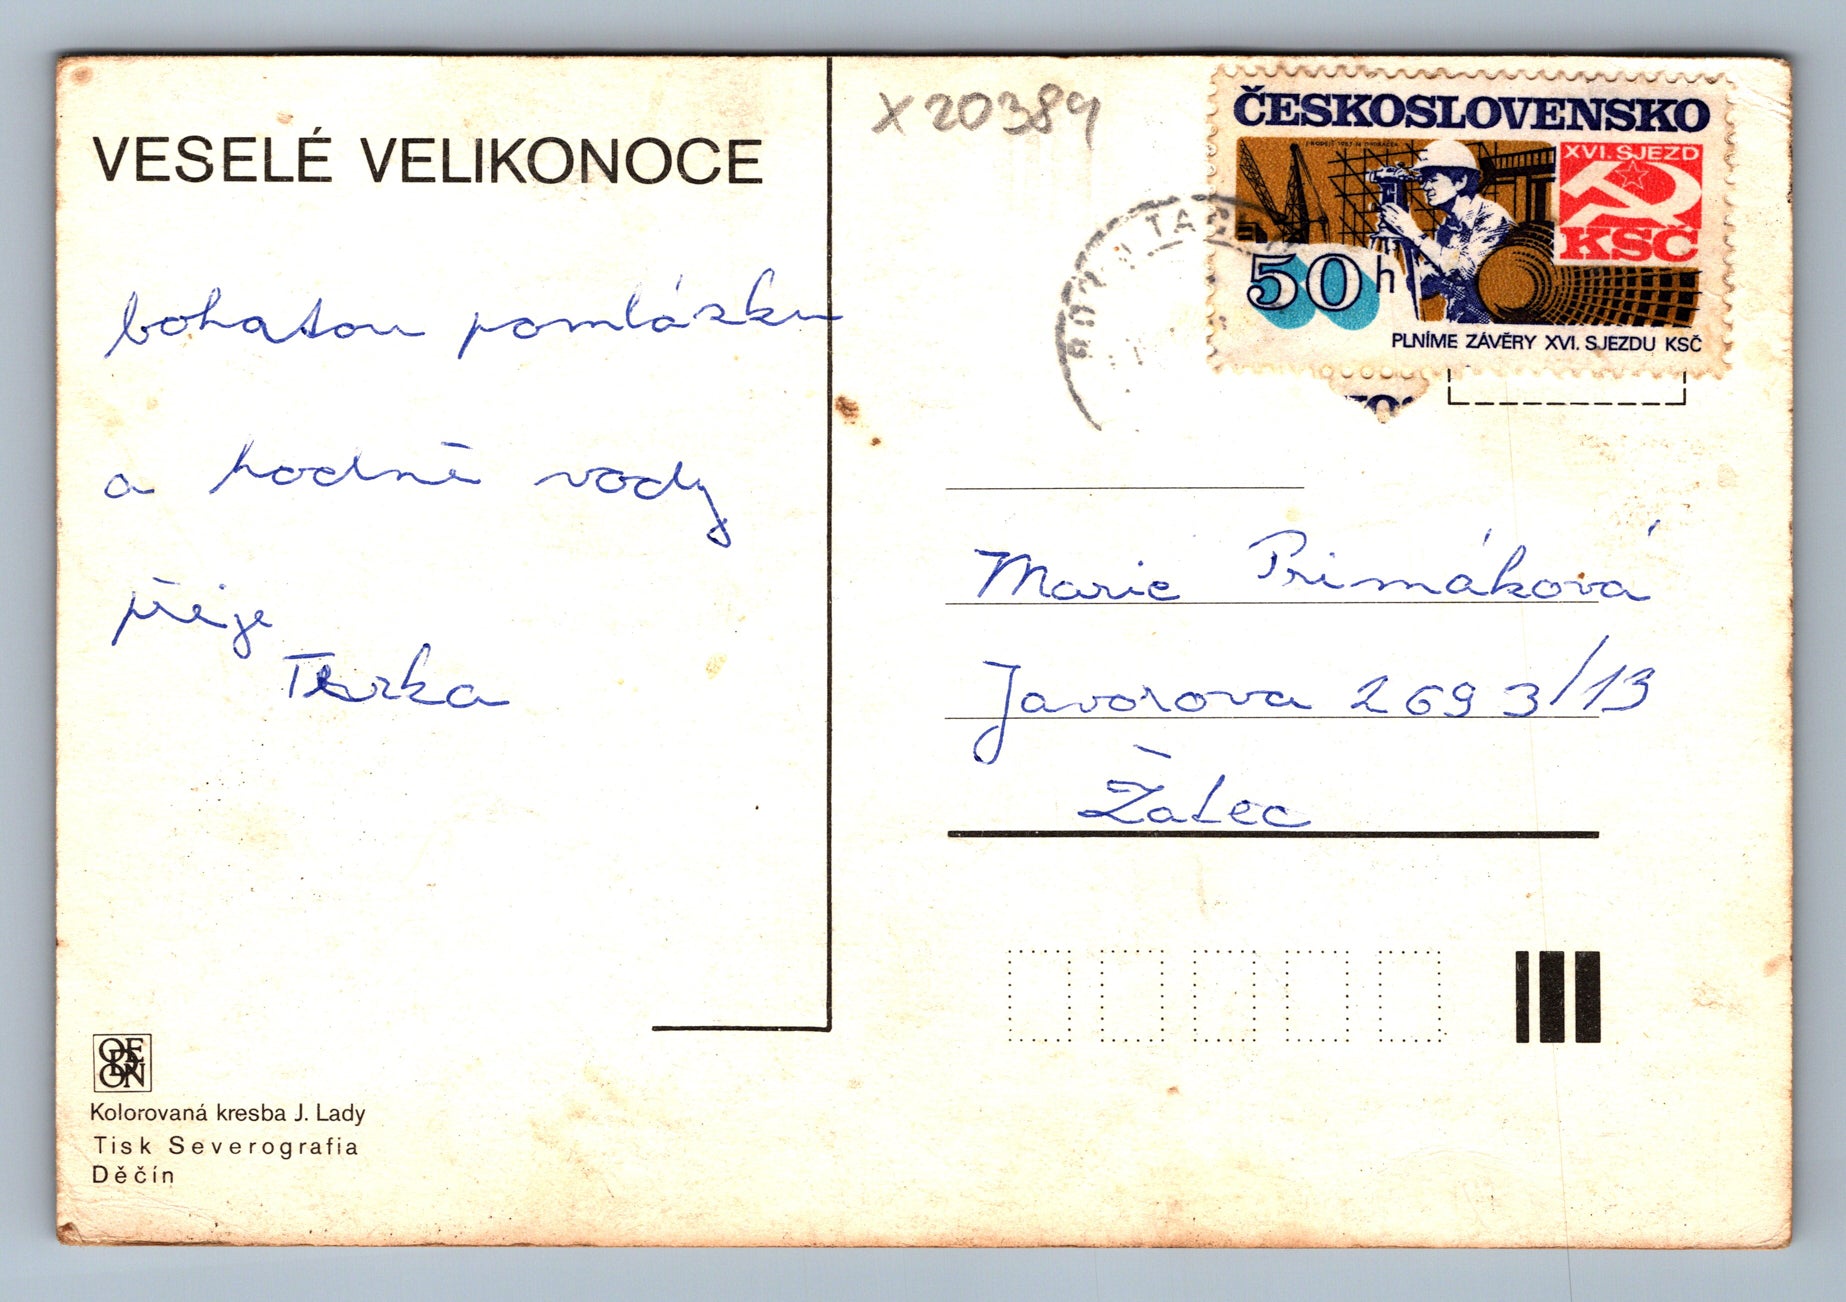 VESELÉ VELIKONOCE
bohatou pomlázku
a hodně vody
přeje
Terka
OEDEON
Kolorovaná kresba J. Lady
Tisk Severografia
Děčín
X 20389
ČESKOSLOVENSKO
XVI. SJEZD
KSČ
50 h
PLNÍME ZÁVĚRY XVI. SJEZDU KSČ
Marie Primáková
Javorova 2693/13
Žatec